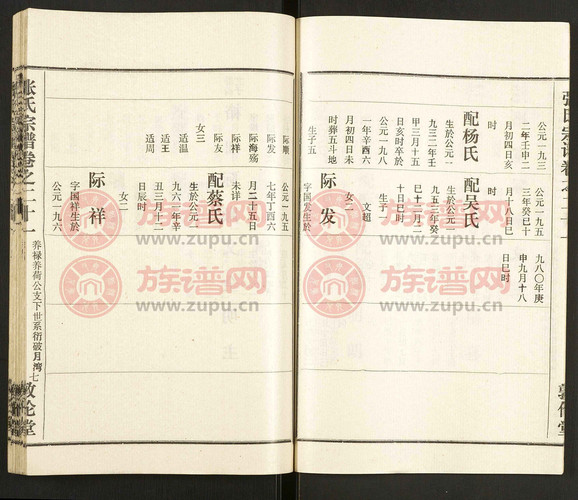 张氏宗谱卷之二
公元一九三
二年壬申二
月初四日亥
时
配杨氏
生於公元一
九三二年壬
申三月十五
日亥时卒於
公元一九八
一年辛酉六
月初四日未
时葬五斗地
生子五
际顺
际发
际海殇
际祥
际友
女三
适温
适王
适周
公元一九五
三年癸巳十
月十八日巳
时
配吴氏
生於公元一
九五三年癸
巳十二月二
十日巳时
生子一
文超
女二
际发
字国发生於
公元一九五
七年丁酉六
月二十五日
未详
配蔡氏
生於公元一
九六一年辛
丑三月十二
日辰时
女一
际祥
字国祥生於
公元一九六
九八〇年庚
申九月十八
日巳时
张氏宗谱卷之二十一
养禄养荷公支下世系衍破月湾七
敦伦堂
敦伦堂
族谱网
www.zupu.cn
族谱网
www.zupu.cn
族谱网
www.zupu.cn
族谱网
www.zupu.cn